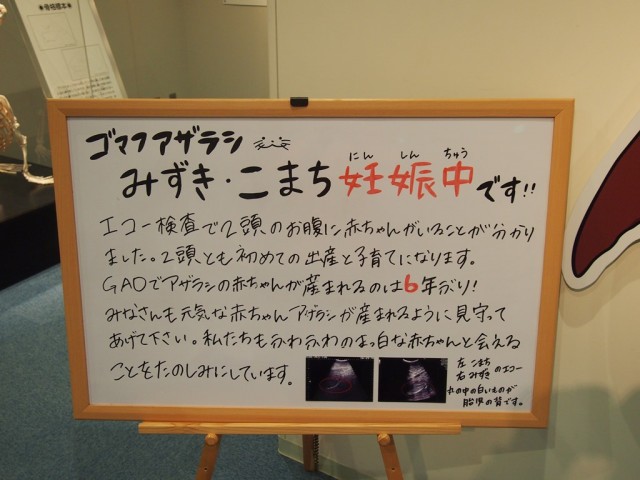 ●骨格標本●
ゴマフアザラシ
みずき・こまち 妊娠中です!!
にん しん ちゅう
エコー検査で2頭のお腹に赤ちゃんがいることが分かり
ました。2頭とも初めての出産と子育てになります。
GAOでアザラシの赤ちゃんが産まれるのは6年ぶり!
みなさんも元気な赤ちゃんアザラシが産まれるように見守って
あげて下さい。私たちもふわふわのまっ白な赤ちゃんと会える
ことをたのしみにしています。
左 こまち
右 みずき のエコー
丸の中の白いものが
胎児の背です。